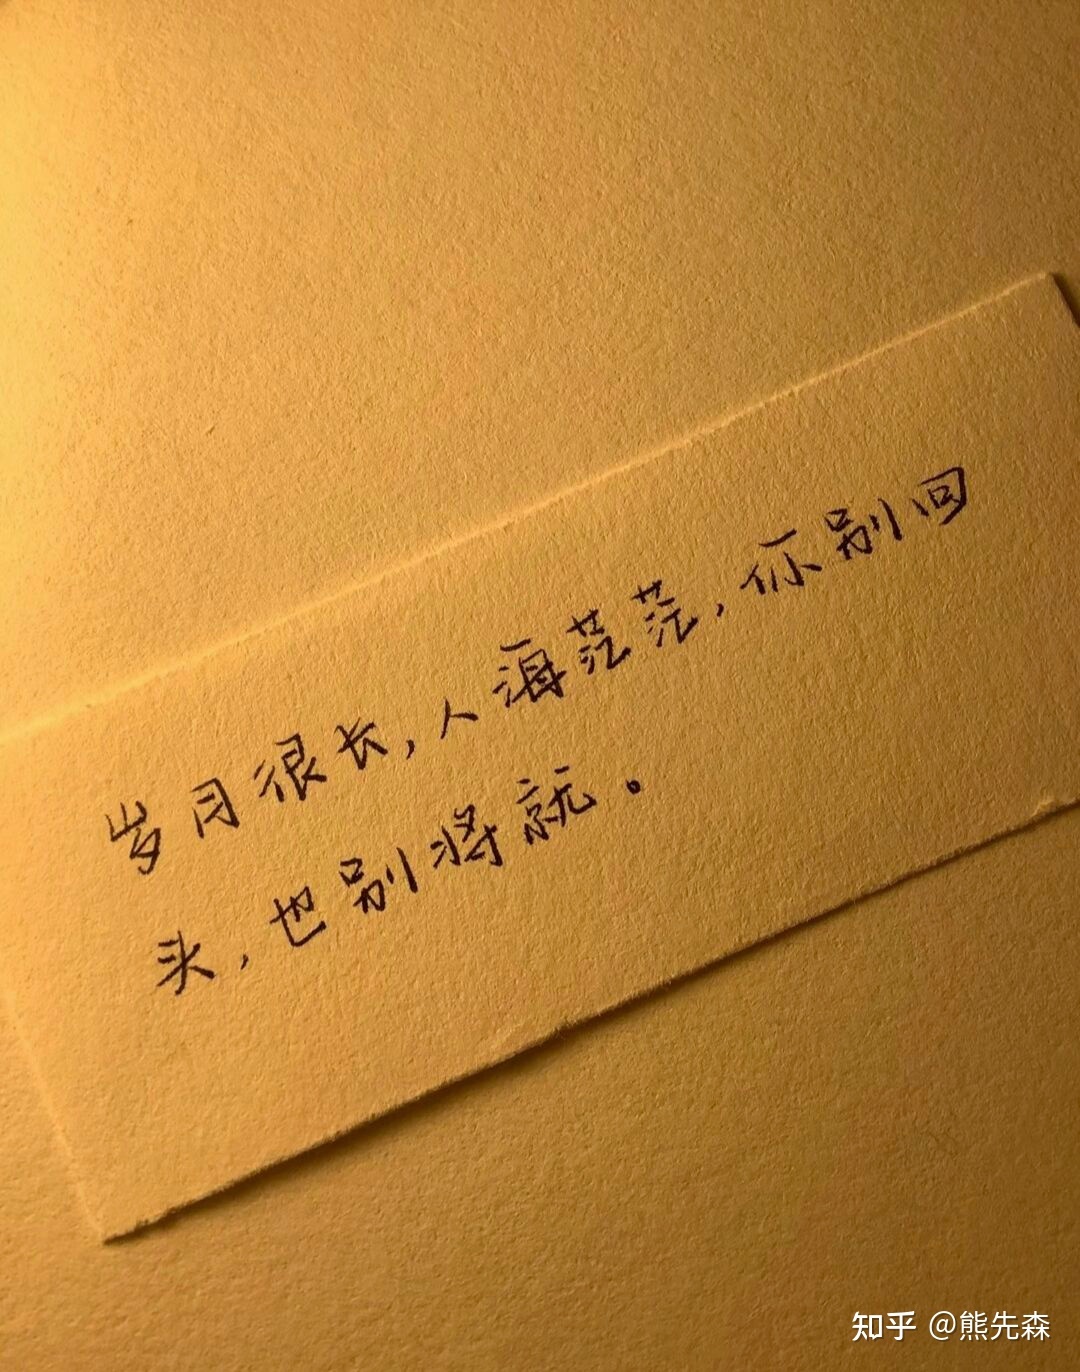 岁月很长，人海茫茫，你别回
头，也别将就。
知乎 @熊先森